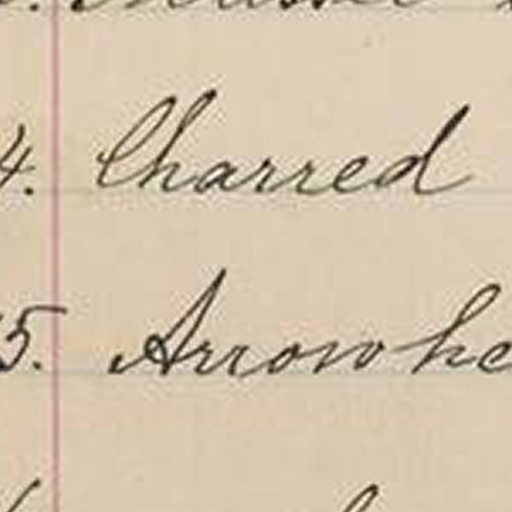 4. Charred
5. Arrowhe